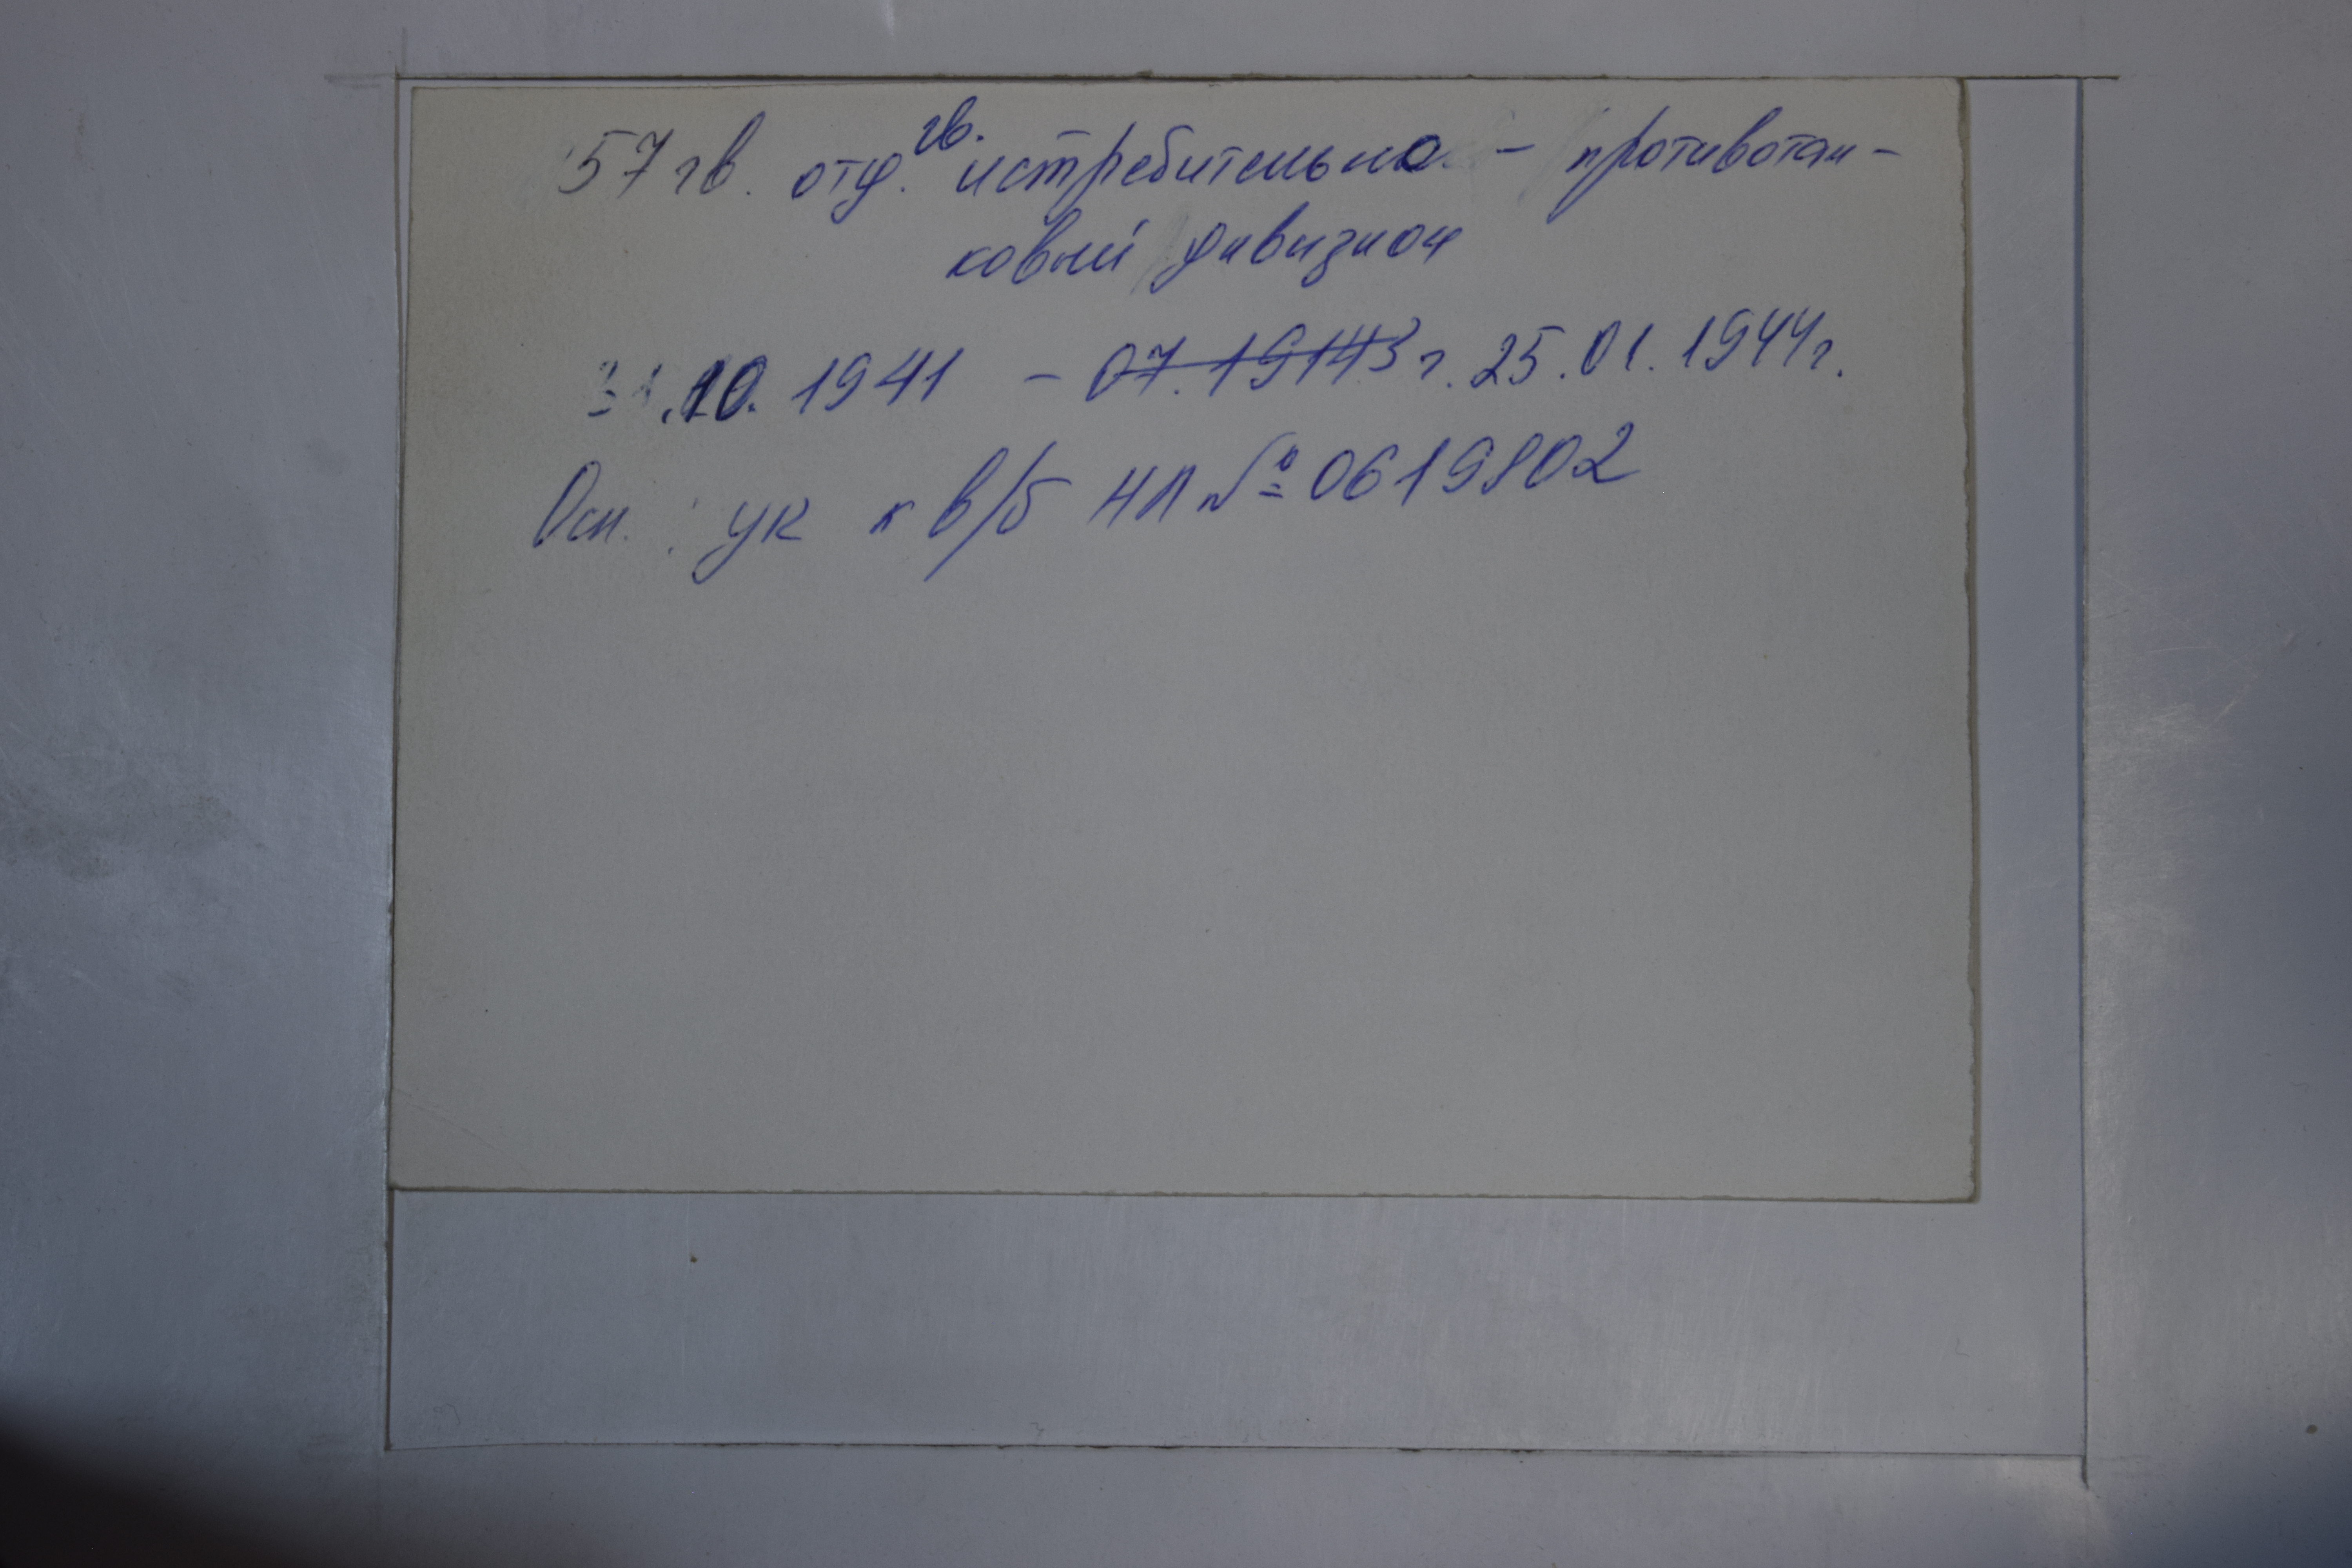 57 гв. отд. гв. истребительно - противотан-
ковый дивизион
31.10.1941 - 07.19143 г. 25.01.1944г.
Осн.: УК к в/б НЛ № 0619802